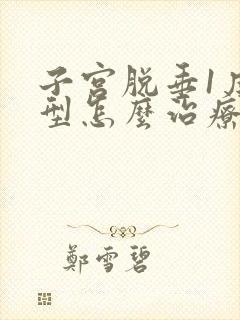 子宫脱垂1度
型怎麼治療
鄭雪碧